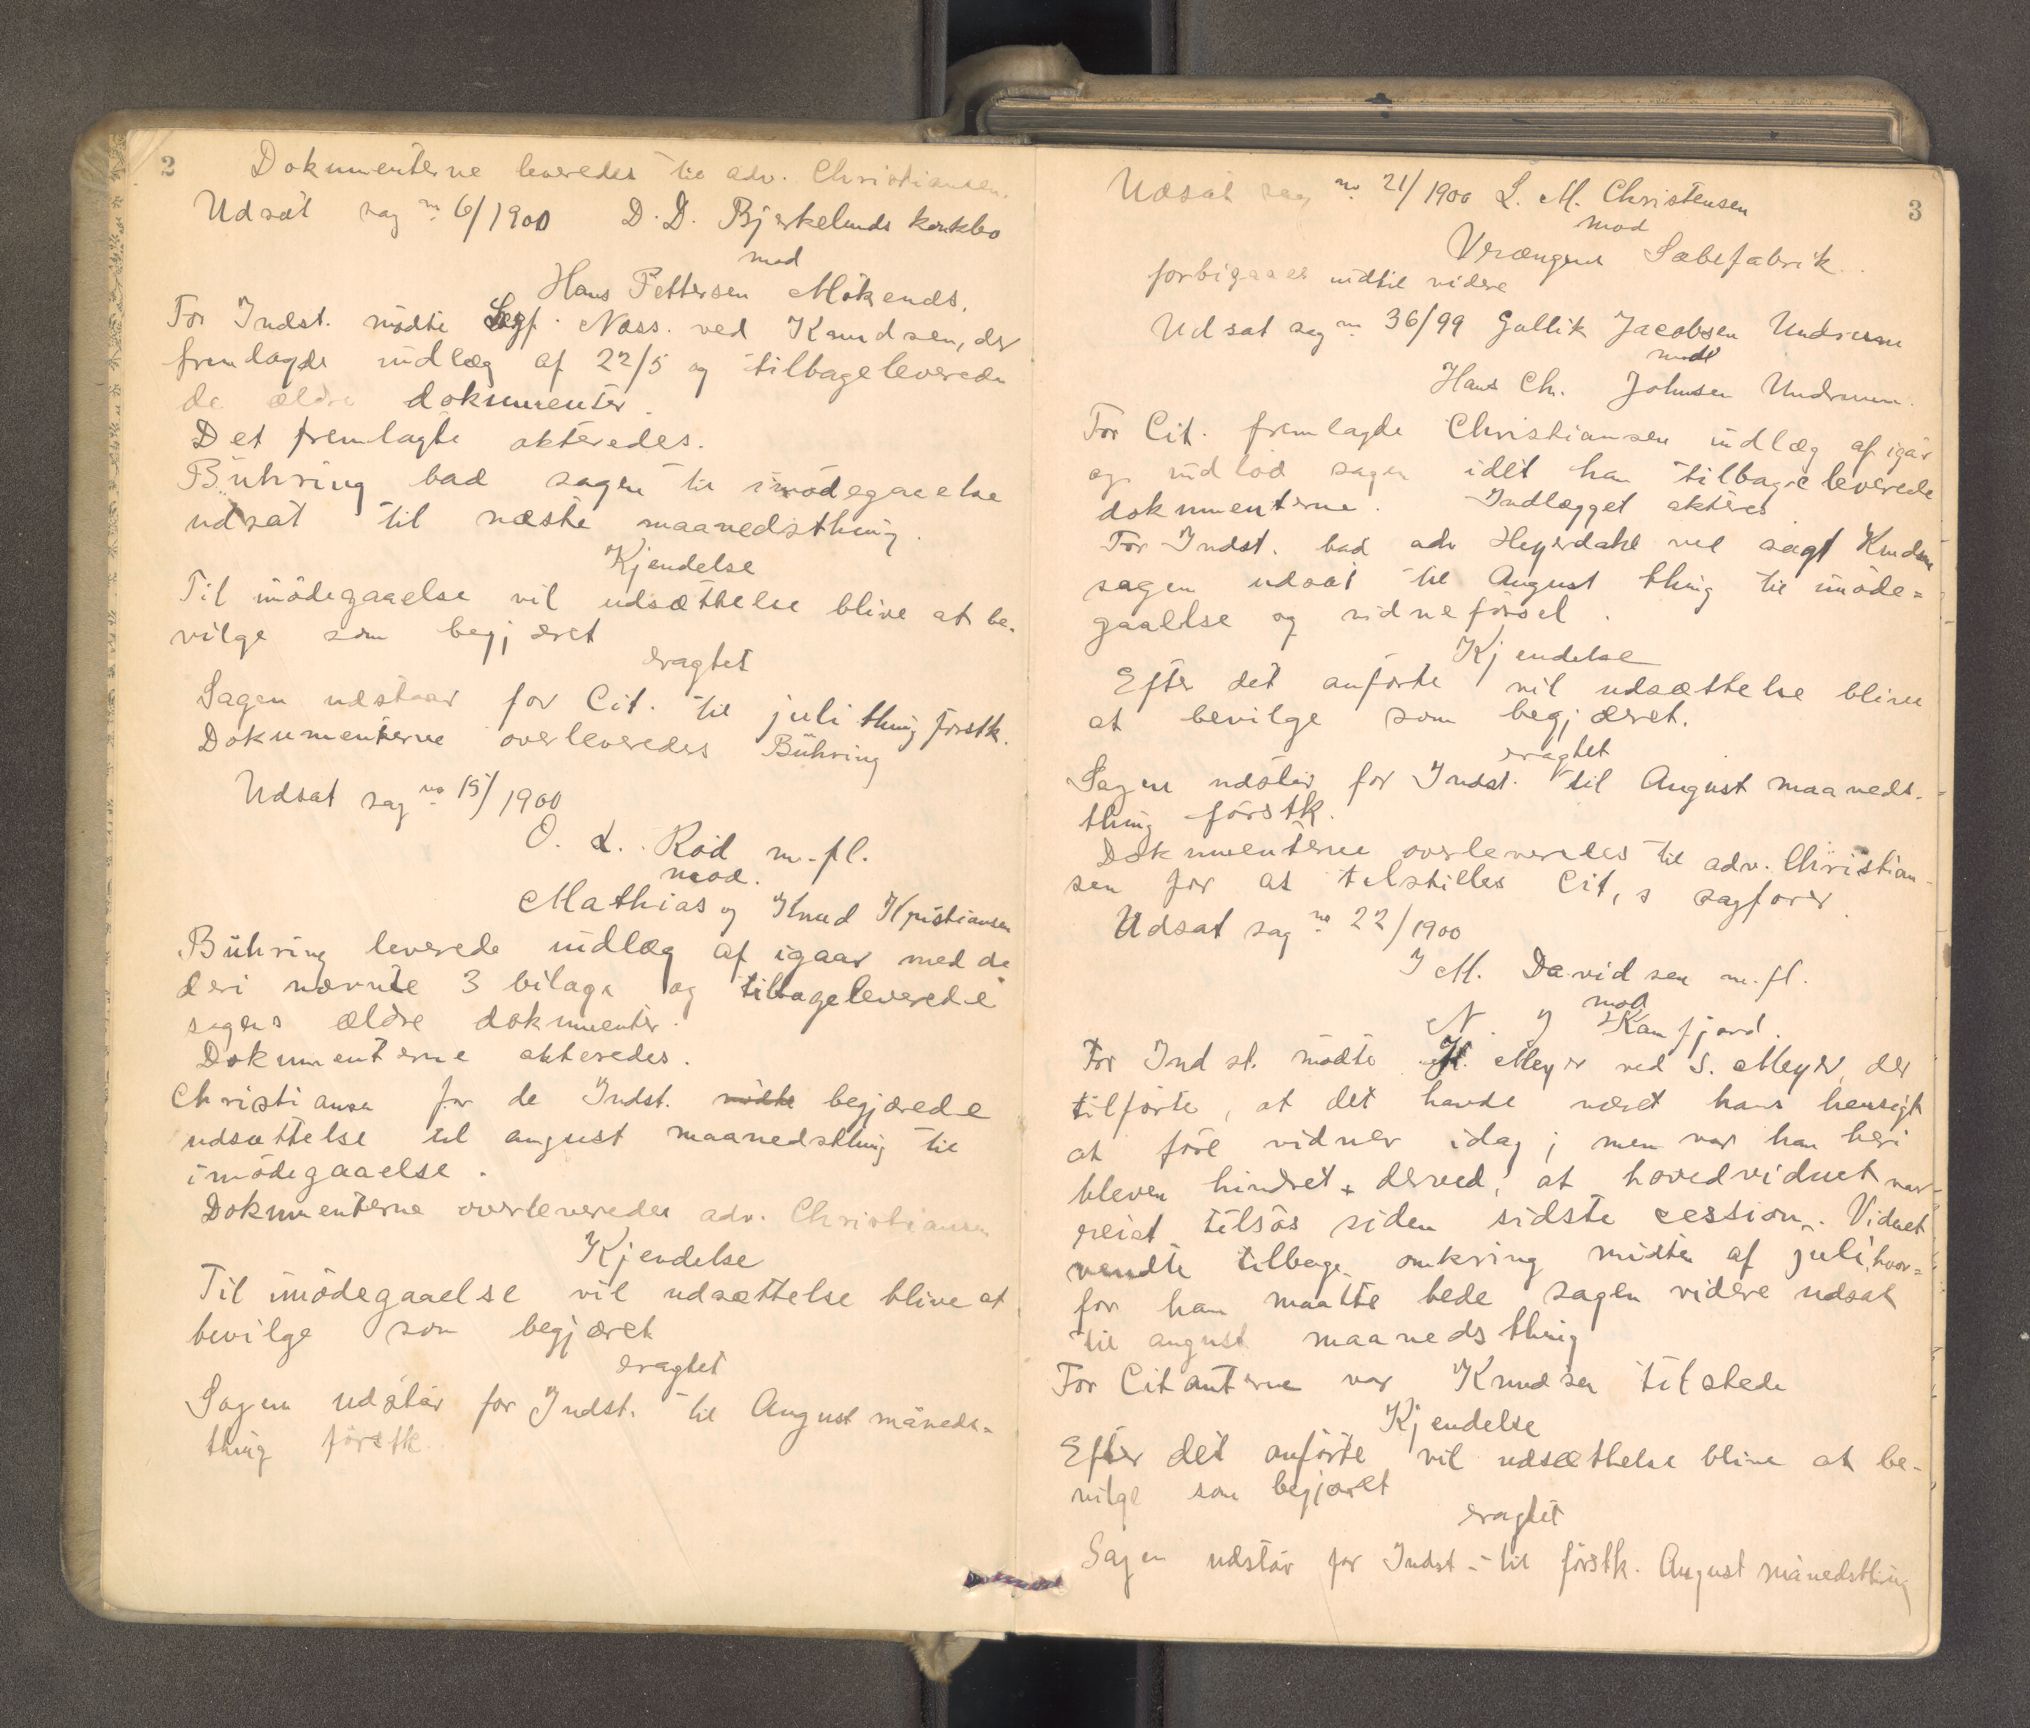 2
Dokumenterne leveredes til adv. Christiansen.
Udsat sag no 6/1900 D. D. Bjerkelunds konkbo
mod
Hans Pettersen Mökends.
For Indst. mödte Sagf. Nass. ved Knudsen, der
fremlagde indlæg af 22/5 og tilbageleverede
de ældre dokumenter.
Det fremlagte akteredes.
Bühring bad sagen til imödegaaelse
udsat til næste maanedsthing.
Kjendelse
Til imödegaaelse vil udsættelse blive at be-
vilge som begjæret
eragtet
Sagen udstaar for Cit. til juli thing förstk.
Dokumenterne overleveredes Bühring
Udsat sag no 15/1900
O. L. Röd m. fl.
mod.
Mathias og Knud Kristiansen
Bühring leverede indlæg af igaar med de
deri nævnte 3 bilage og tilbageleverede
sagens ældre dokumenter.
Dokumenterne akteredes.
Christiansen for de Indst. mödte begjærede
udsættelse til august maanedsthing til
imödegaaelse.
Dokumenterne overleveredes adv. Christiansen
Kjendelse
Til imödegaaelse vil udsættelse blive at
bevilge som begjæret
eragtet
Sagen udstår for Indst. til August måneds-
thing förstk.
3
Udsat sag no 21/1900 L. M. Christensen
mod
Vrængens Sæbefabrik.
forbigaaes indtil videre
Udsat sag no 36/99 Gullik Jacobsen Undrum
mod
Hans Ch. Johnsen Undrum.
For Cit. fremlagde Christiansen indlæg af igår
og indlod sagen idet han tilbageleverede
dokumenterne. Indlægget akteres
For Indst. bad adv Heyerdahl ved sagf Knudsen
sagen udsat til August thing til imöde-
gaaelse og vidneförsel.
Kjendelse
Efter det anförte vil udsættelse blive
at bevilge som begjæret.
eragtet
Sagen udstår for Indst. til August maaneds-
thing förstk.
Dokumenterne overleveredes til adv. Christian-
sen for at tilstilles Cit,s sagförer.
Udsat sag no 22/1900
I M. Davidsen m. fl.
mod
N. J Kamfjord.
For Indst. mödte H. Meyer ved S. Meyer, der
tilförte, at det havde været hans hensigt
at före vidner idag; men var han heri
bleven hindret derved, at hovedvidnet var
reist tilsös siden sidste session. Vidnet
vendte tilbage omkring midten af juli, hvor-
for han maatte bede sagen videre udsat
til august maanedsthing
For Citanterne var Knudsen tilstede
Kjendelse
Efter det anförte vil udsættelse blive at be-
vilge som begjæret
eragtet
Sagen udstår for Indst - til förstk. August månedsthing